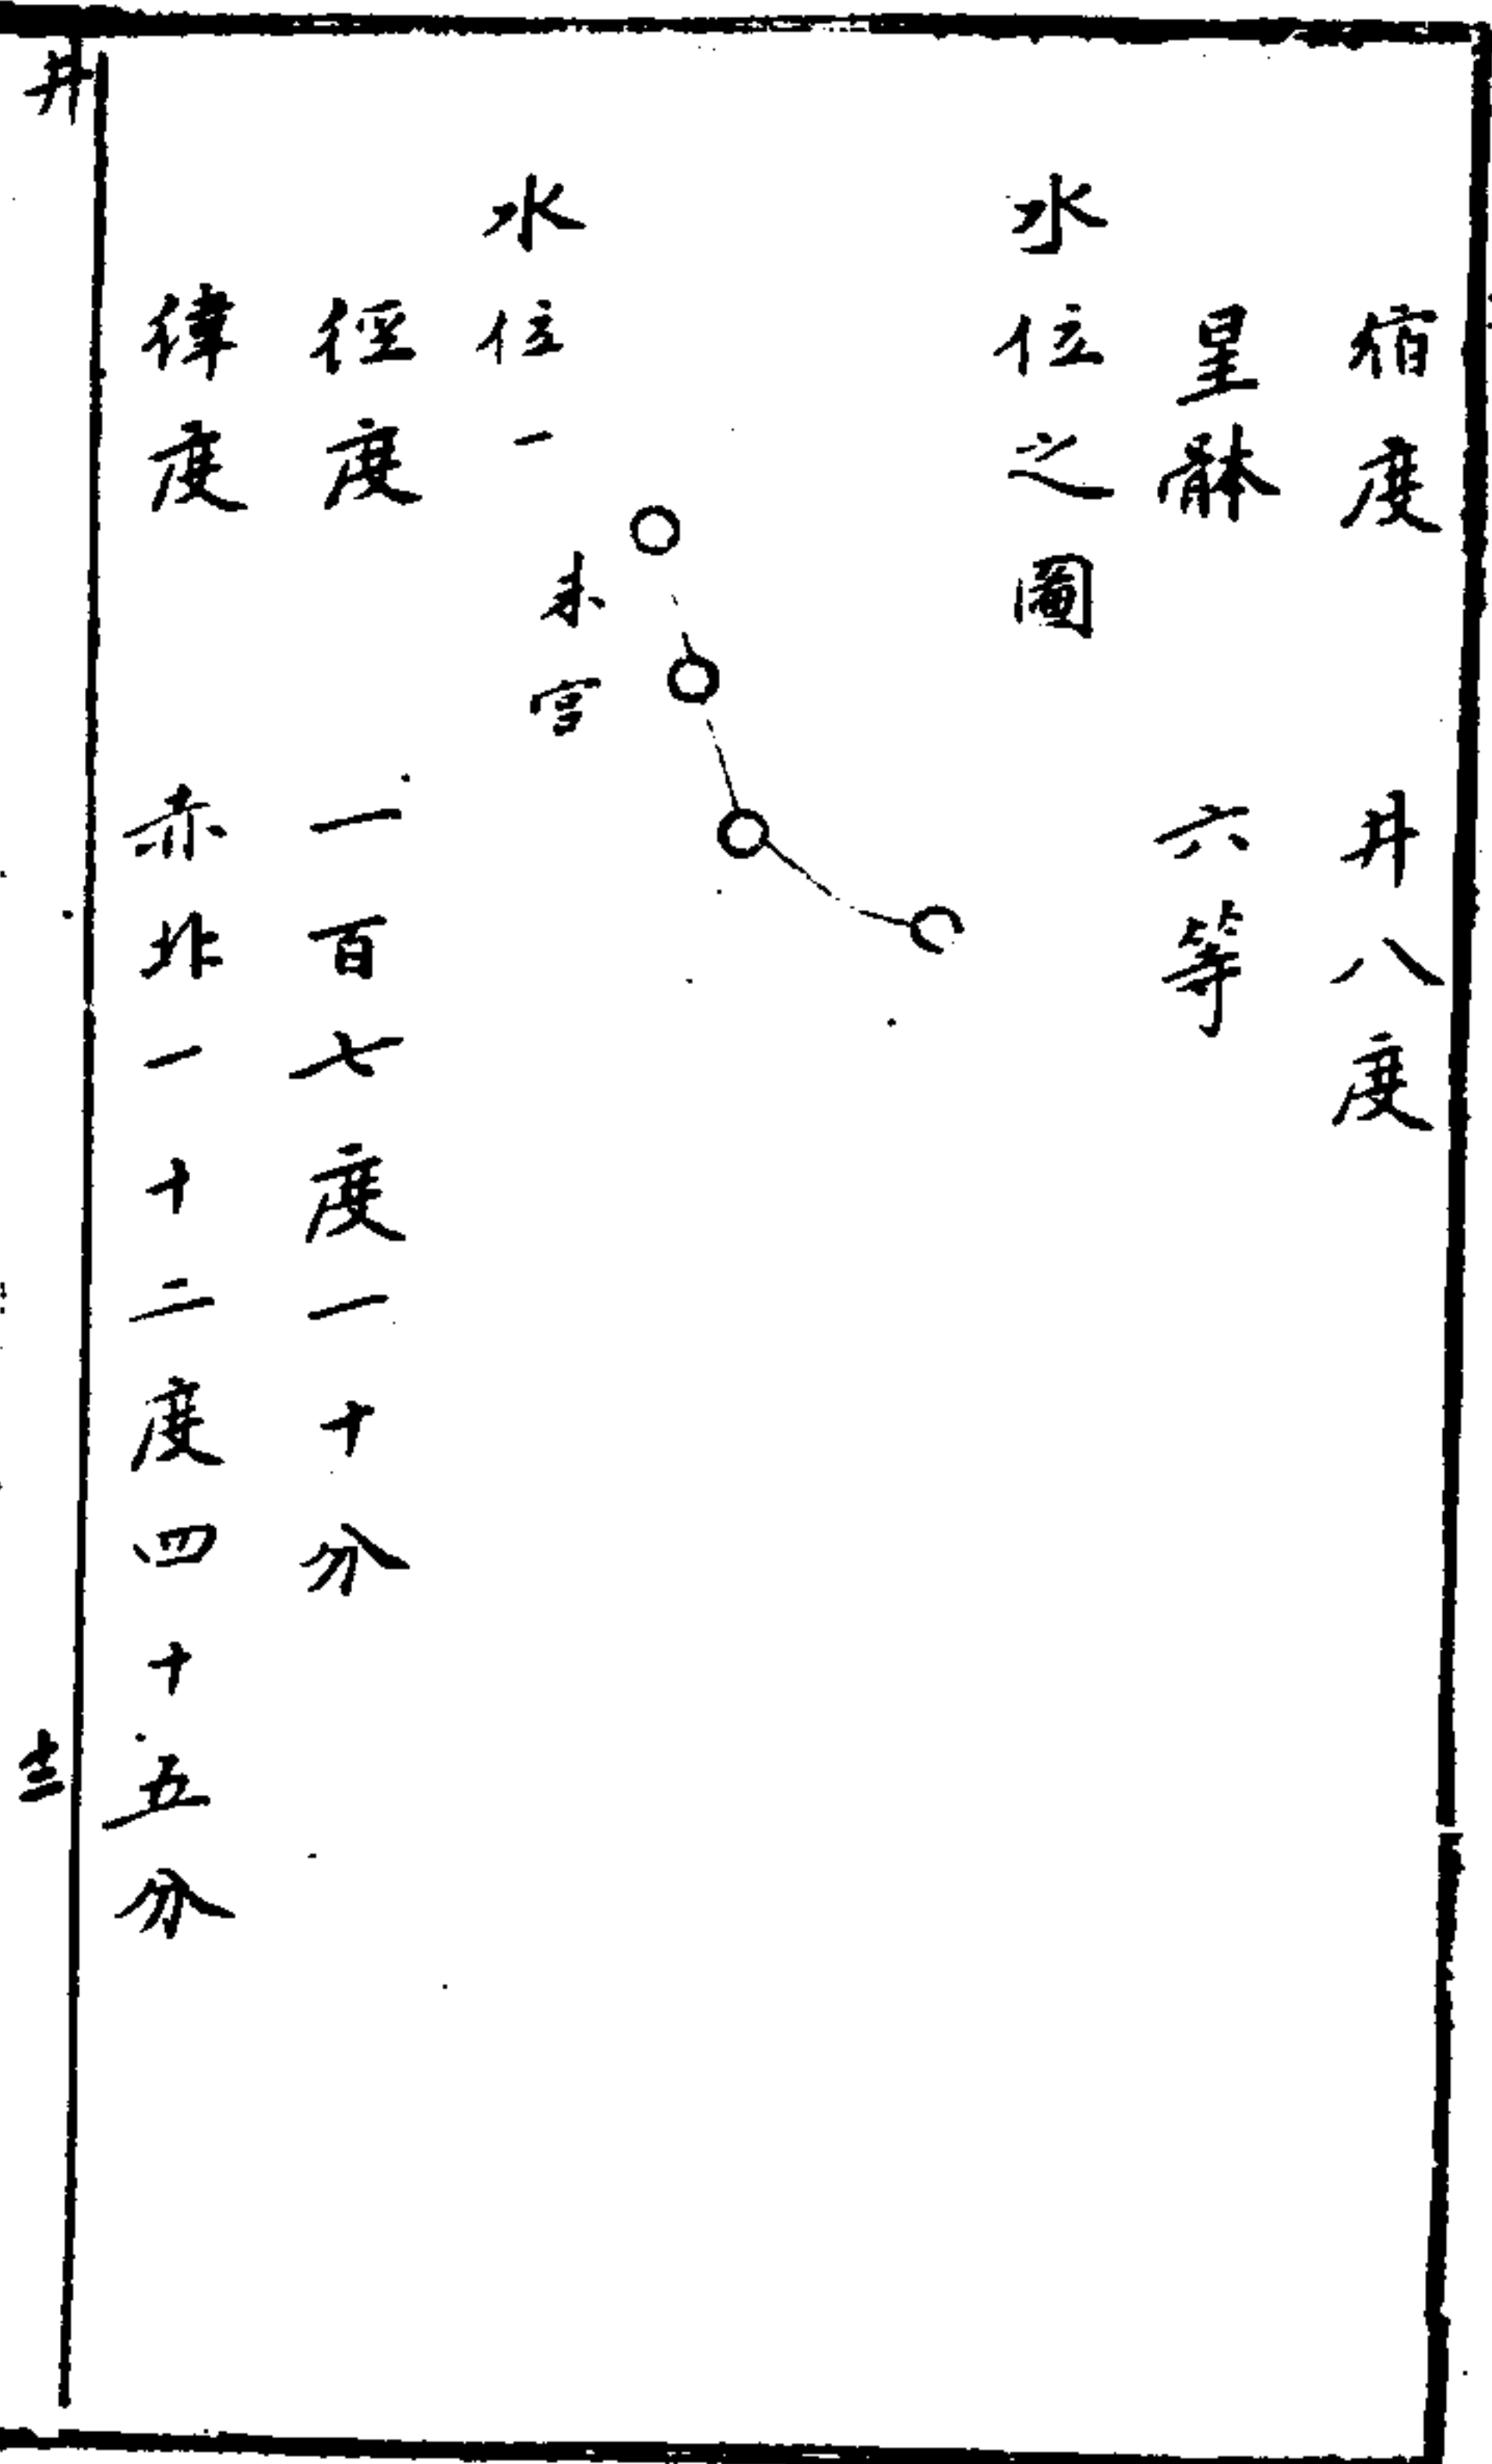 宿度　井八度
星体　六等
水位之圖
水位一　未宮
徑度　一百七度一十分
緯度　赤北一十二度四十五分
井